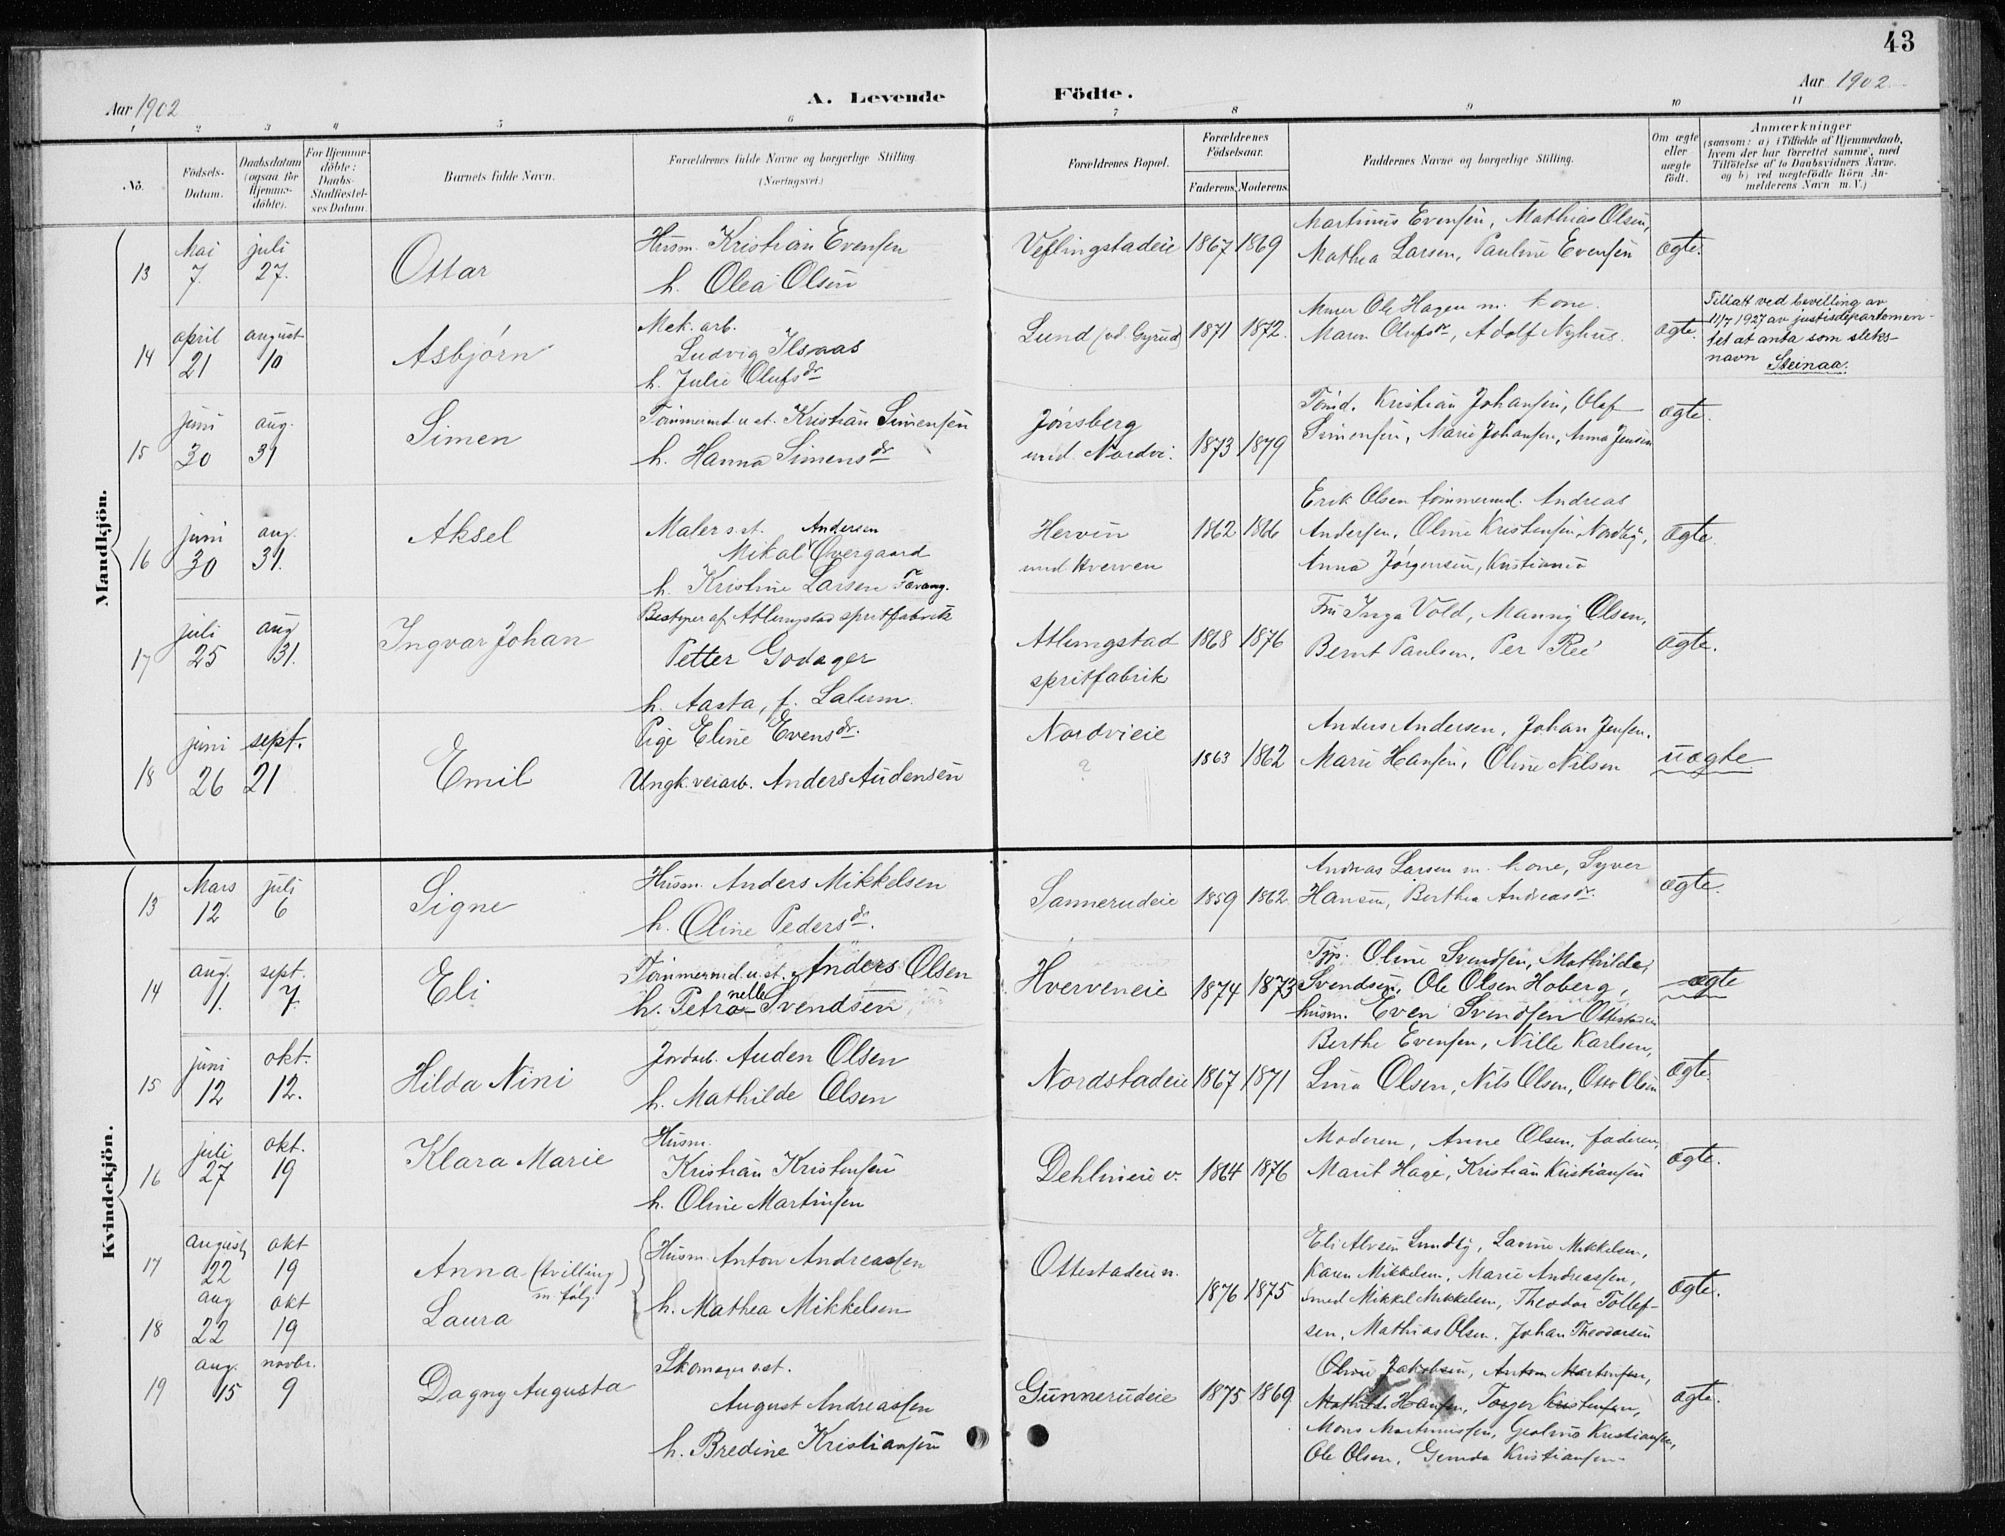 43
Aar 1902
A. Levende Födte.
Aar 1902
1 2 3 4 5 6 7 8 9 10 11
No.
Födsels-Datum.
Daabsdatum (ogsaa for Hjemmedöbte).
For Hjemmedöbte: Daabs-Stadfæstelses Datum.
Barnets fulde Navn.
Forældrenes fulde Navne og borgerlige Stilling (Næringsvei.)
Forældrenes Bopæl.
Forældrenes Födselsaar.
Faderens. Moderens.
Faddernes Navne og borgerlige Stilling.
Om ægte eller uægte födt.
Anmærkninger
(saasom: a) i Tilfælde af Hjemmedaab, hvem der har forrettet samme, med Tilföielse af to Daabsvidners Navne. og b) ved uægtefödte Börn Anmelderens Navn m. V.)
Mandkjön.
13 Mai 7. juli 27. Ottar
Husm. Kristian Evensen
h. Olea Olsen
Veflingstadeie 1867 1869
Martinus Evensen, Mathias Olsen,
Mathea Larsen, Pauline Evensen
ægte.
14 april 21 august 10 Asbjørn
Mek. arb.
Ludvig Ilsaas
h. Julie Olufsdr
Lund (vd. Gyrud) 1871 1872.
Murer Ole Hagen m. kone.
Maren Olufsdr, Adolf Nyhus.
ægte.
Tillatt ved bevilling av
11/7 1927 av justisdepartemen-
tet at anta som slekts-
navn Steinaa.
15 juni 30 aug. 31 Simen
Tømmermd. u. st. Kristian Simensen
h. Hanna Simensdr
Jønsberg
und. Nordvi. 1873 1879
Tømd. Kristian Johansen, Olaf
Simensen, Marie Johansen, Anna Jensen
ægte.
16 juni 30 aug. 31. Aksel
Maler s.st. Andersen
Mikal Overgaard
h. Kristine Larsen Favang.
Hervin
und Hverven 1862 1866
Erik Olsen tømmermd. Andreas
Andersen, Oline Kristensen Nordby,
Anna Jørgensen, Kristiania
ægte.
17 juli 25 aug 31. Ingvar Johan
Bestyrer af Atlungstad spritfabrik
Petter Godager
h. Aasta, f. Salum.
Atlungstad
spritfabrik 1868 1876
Fru Inga Vold, Manny Olsen,
Bernt Paulsen, Per Ree
ægte.
18 juni 26 sept. 21 Emil
Pige Eline Evensdr.
Ungk. veiarb. Anders Audensen
Nordvieie
? 1863 1862
Anders Andersen, Johan Jensen.
Marie Hansen, Oline Nilsen
uægte
Kvindekjön.
13 Mars 12 juli 6 Signe
Husm. Anders Mikkelsen
h. Oline Pedersdr.
Sannerudeie 1859 1862.
Andreas Larsen m. kone, Syver
Hansen, Berthea Andreasdr.
ægte.
14 aug. 1. sept. 7. Eli
Tømmermd. u. st. Anders Olsen
h. Petronelle Svendsen
Hverveneie 1874 1873
Tjp. Oline Svendsen, Mathilde
Svendsen, Ole Olsen Hoberg,
husm. Even Svendsen Ottestadeie
ægte
15 juni 12 okt. 12. Hilda Nini
Jordarb. Auden Olsen
h. Mathilde Olsen
Nordstadeie 1867 1871
Berthe Evensen, Nille Karlsen,
Lina Olsen, Nils Olsen, Otto Olsen
ægte.
16 juli 27 okt. 19 Klara Marie
Husm.
Kristian Kristensen
h. Oline Martinsen
Dehlineie v. 1864 1876
Moderen, Anne Olsen, faderen,
Marit Hage, Kristian Kristiansen
ægte.
17 august 22 okt 19 Anna (tvilling m. følg.)
18 aug 22 okt 19 Laura
Husm. Anton Andreassen
h. Mathea Mikkelsen
Ottestadeie n. 1876 1875
Eli Alvsen Lundby, Lavine Mikkelsen,
Karen Mikkelsen, Marie Andreassen,
smed Mikkel Mikkelsen, Theodor Tollef-
sen, Mathias Olsen. Johan Theodorsen
ægte.
19 aug. 15 novbr. 9 Dagny Augusta
Skomager s.st.
August Andreassen
h. Bredine Kristiansen
Gunnerudeie 1875 1869
Oline Jakobsen, Anton Martinsen,
Mathilde Hansen, Torger Kristensen,
Mons Martinussen, Kristiansen,
Ole Olsen, Gunda Kristiansen
ægte.